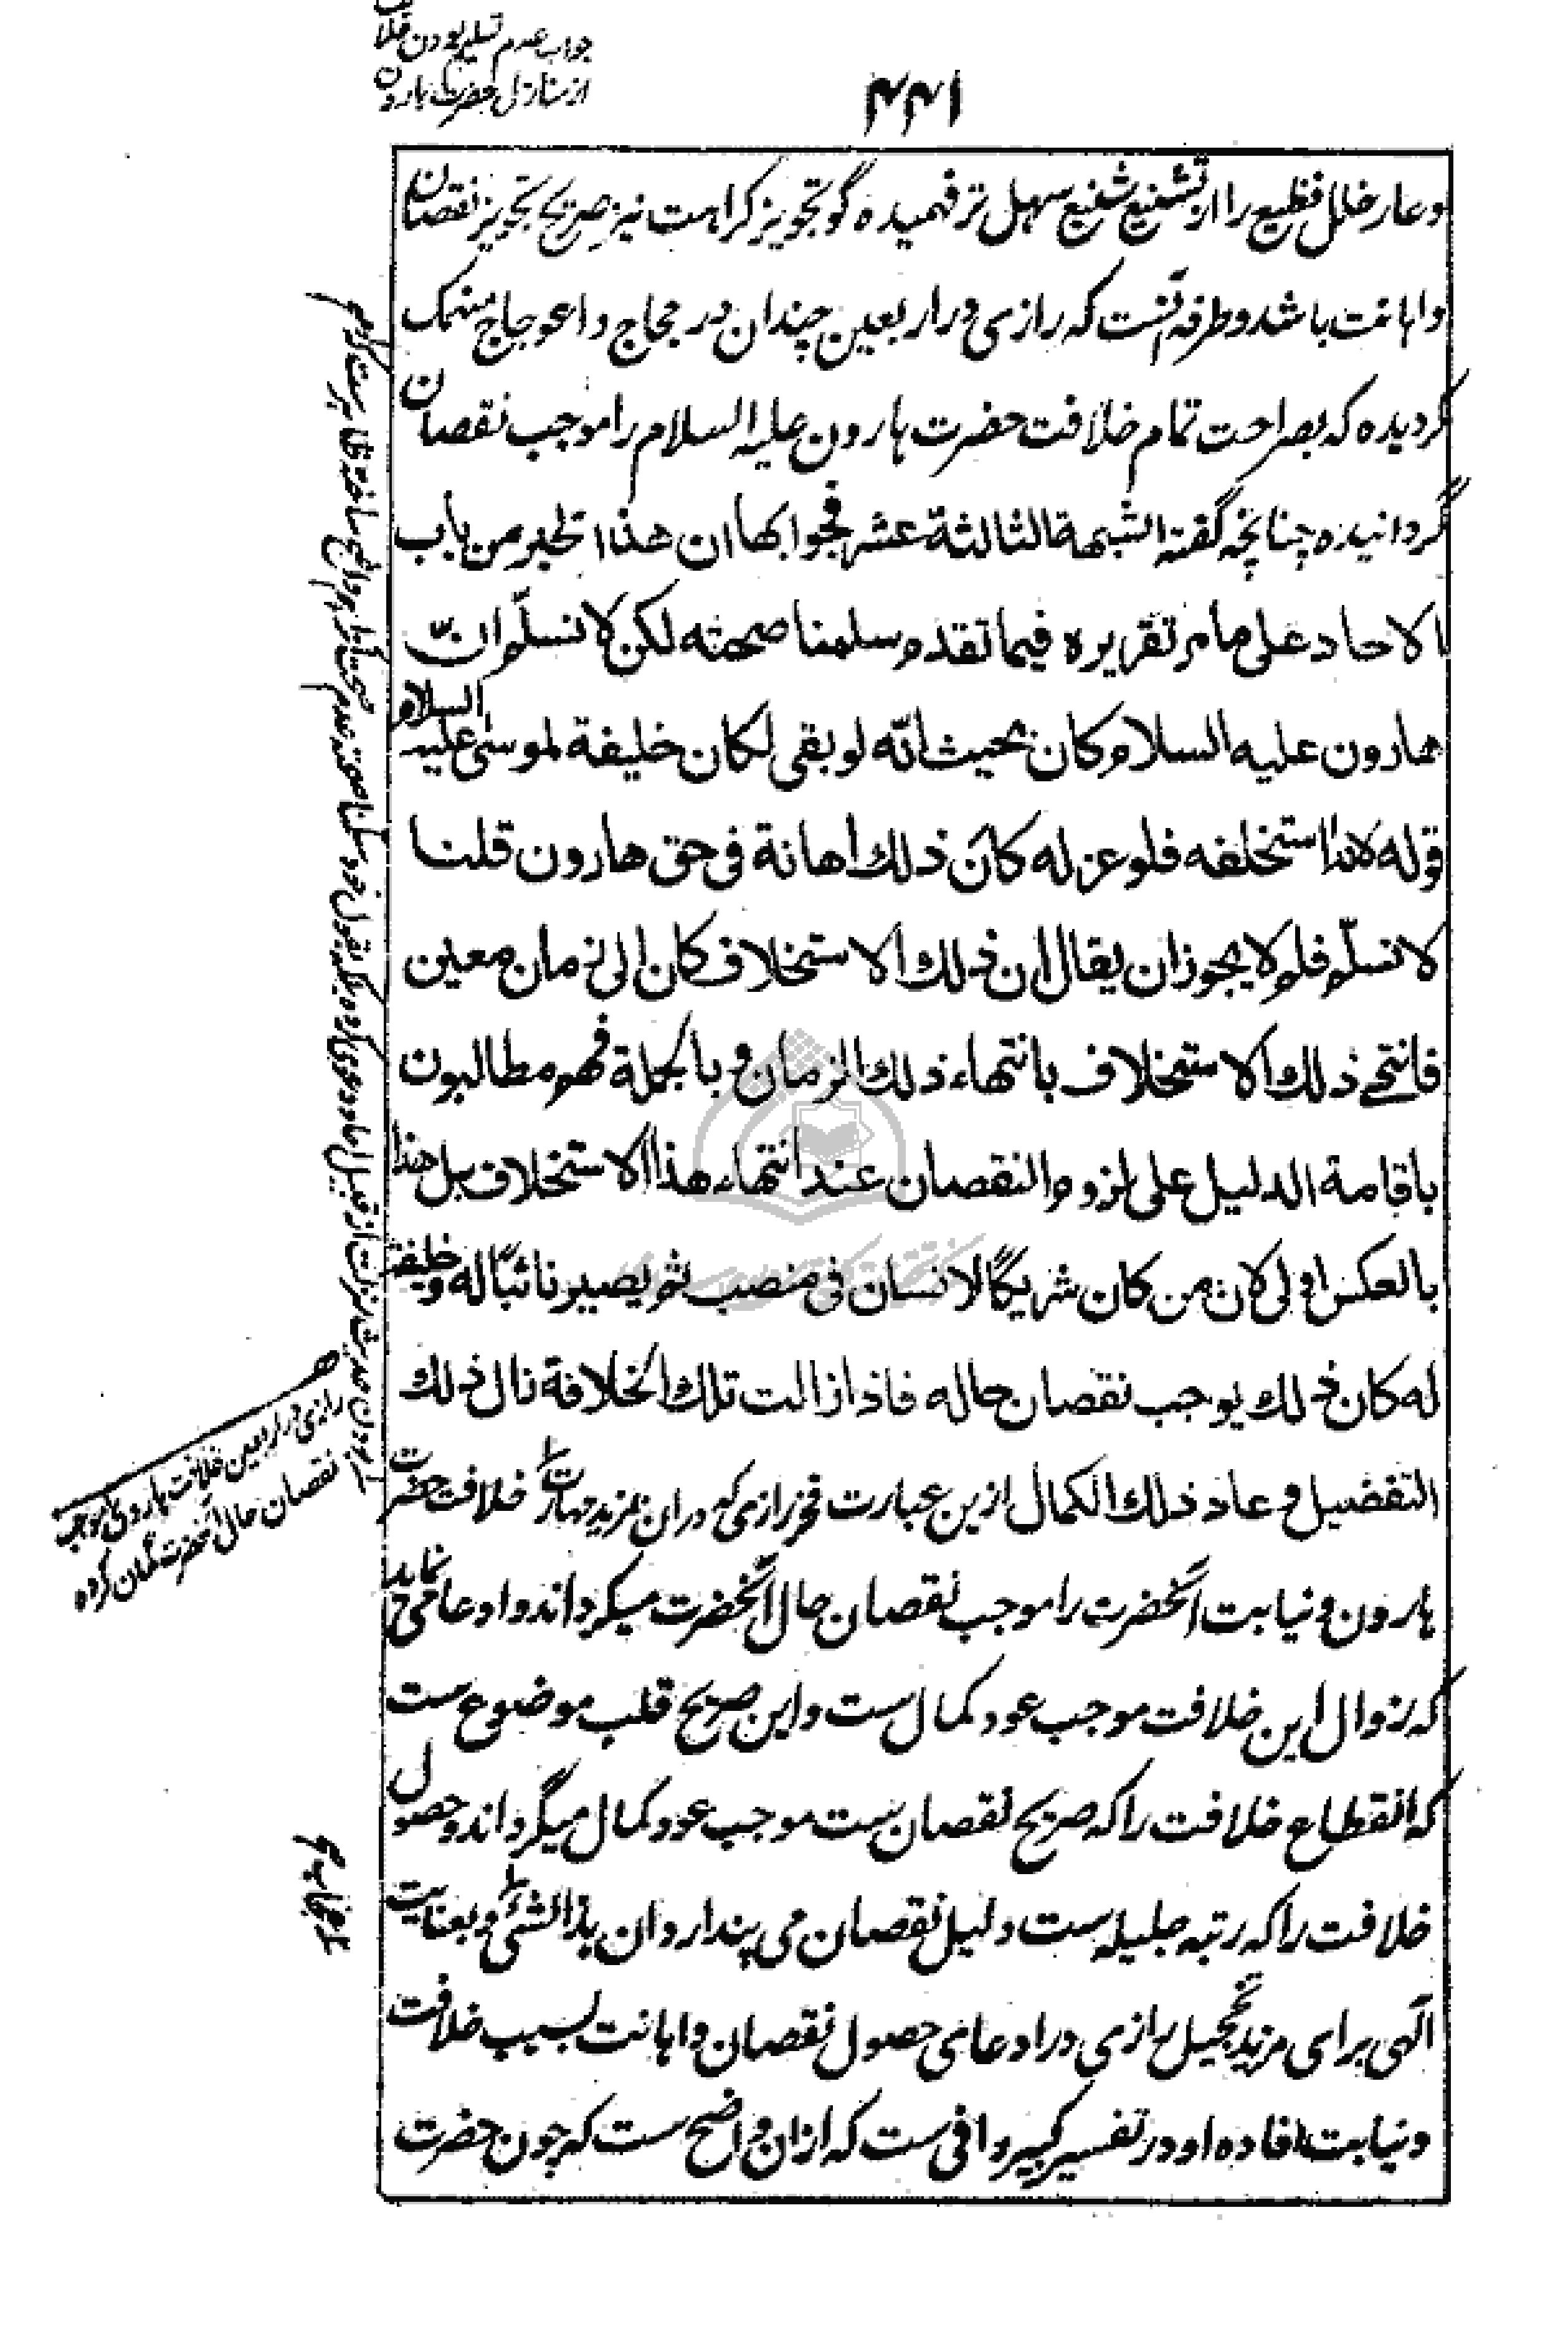 جواب عدم تسلیم بودن خلافت
از منازل حضرت هارون
۴۴۱
وعار خلل فظیع را از تشنیع شنیع سهل تر فهمیده گو تجویز کراهت نیز صریح تجویز نقصان
و اهانت باشد و طرفه آنست که رازی در اربعین چندان در حجاج و اعوجاج منهمک
گردیده که بصراحت تمام خلافت حضرت هارون علیه السلام را موجب نقصان
گردانیده چنانچه گفته الشبهة الثالثة عشر فجوابها ان هذا الخبر من باب
الاحاد على ما مر تقریره فیما تقدم سلمنا صحته لکن لا نسلّم انّ
هارون علیه السلام کان بحیث انّه لو بقی لکان خلیفة لموسی علیه السلام
قوله لانه استخلفه فلو عزله کان ذلك اهانة فی حق هارون قلنا
لا نسلّم فلم لا یجوز ان یقال ان ذلك الاستخلاف کان الی زمان معین
فانتهی ذلك الاستخلاف بانتهاء ذلك الزمان و بالجملة فهم مطالبون
باقامة الدلیل علی لزوم النقصان عند انتهاء هذا الاستخلاف بل هذا
بالعکس اولی لان من کان شریکًا لانسان فی منصب ثم یصیر نائبًا له و خلیفة
له کان ذلك یوجب نقصان حاله فاذا زالت تلك الخلافة زال ذلك
التفضیل و عاد ذلك الکمال ازین عبارت فخر رازی که در ان بمزید مهارت خلافت حضرت
هارون و نیابت آنحضرت را موجب نقصان حال آنحضرت میگرداند و ادعا می نماید
که زوال این خلافت موجب عود کمال ست و این صریح قلب موضوع ست
که انقطاع خلافت را که صریح نقصان ست موجب عود کمال میگرداند و حصول
خلافت را که رتبه جلیله ست دلیل نقصان می پندارد ان هذا لشئ و بعنایت
الهی برای مزید تخجیل رازی در ادعای حصول نقصان و اهانت بسبب خلافت
و نیابت افاده او در تفسیر کبیر وافی ست که ازان واضح ست که چون حضرت
رازی در اربعین خلافت هارونی موجب
نقصان حال آنحضرت گمان کرده